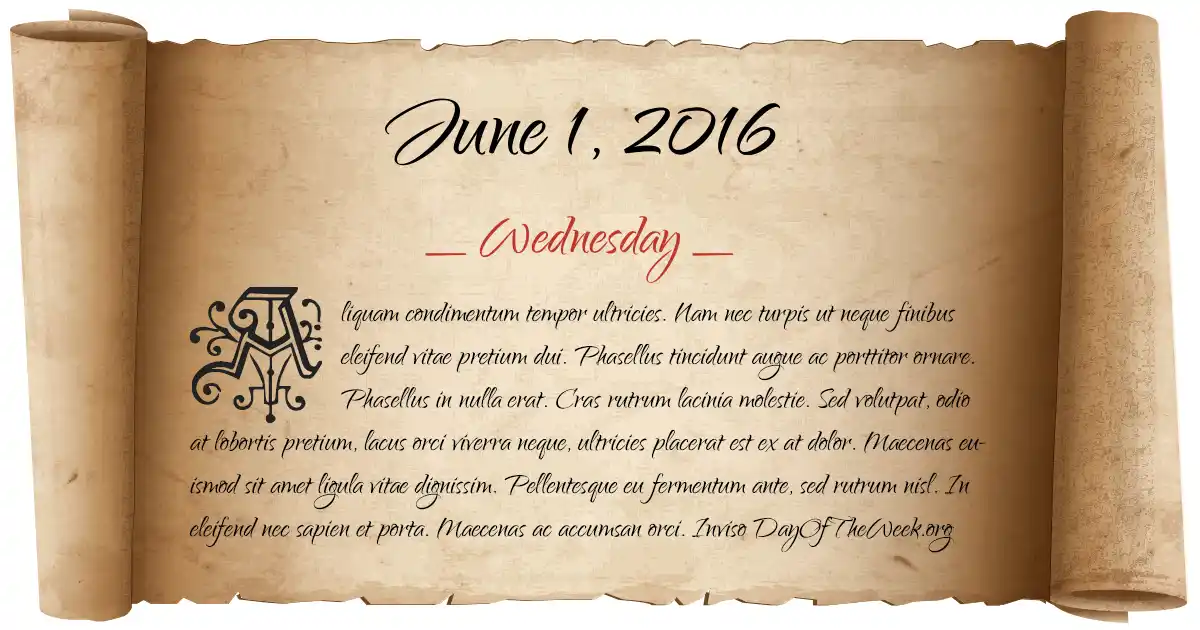 June 1, 2016
Wednesday
Aliquam condimentum tempor ultricies. Nam nec turpis ut neque finibus
eleifend vitae pretium dui. Phasellus tincidunt augue ac porttitor ornare.
Phasellus in nulla erat. Cras rutrum lacinia molestie. Sed volutpat, odio
at lobortis pretium, lacus orci viverra neque, ultricies placerat est ex at dolor. Maecenas eu-
ismod sit amet ligula vitae dignissim. Pellentesque eu fermentum ante, sed rutrum nisl. In
eleifend nec sapien et porta. Maecenas ac accumsan orci. Inviso DayOfTheWeek.org